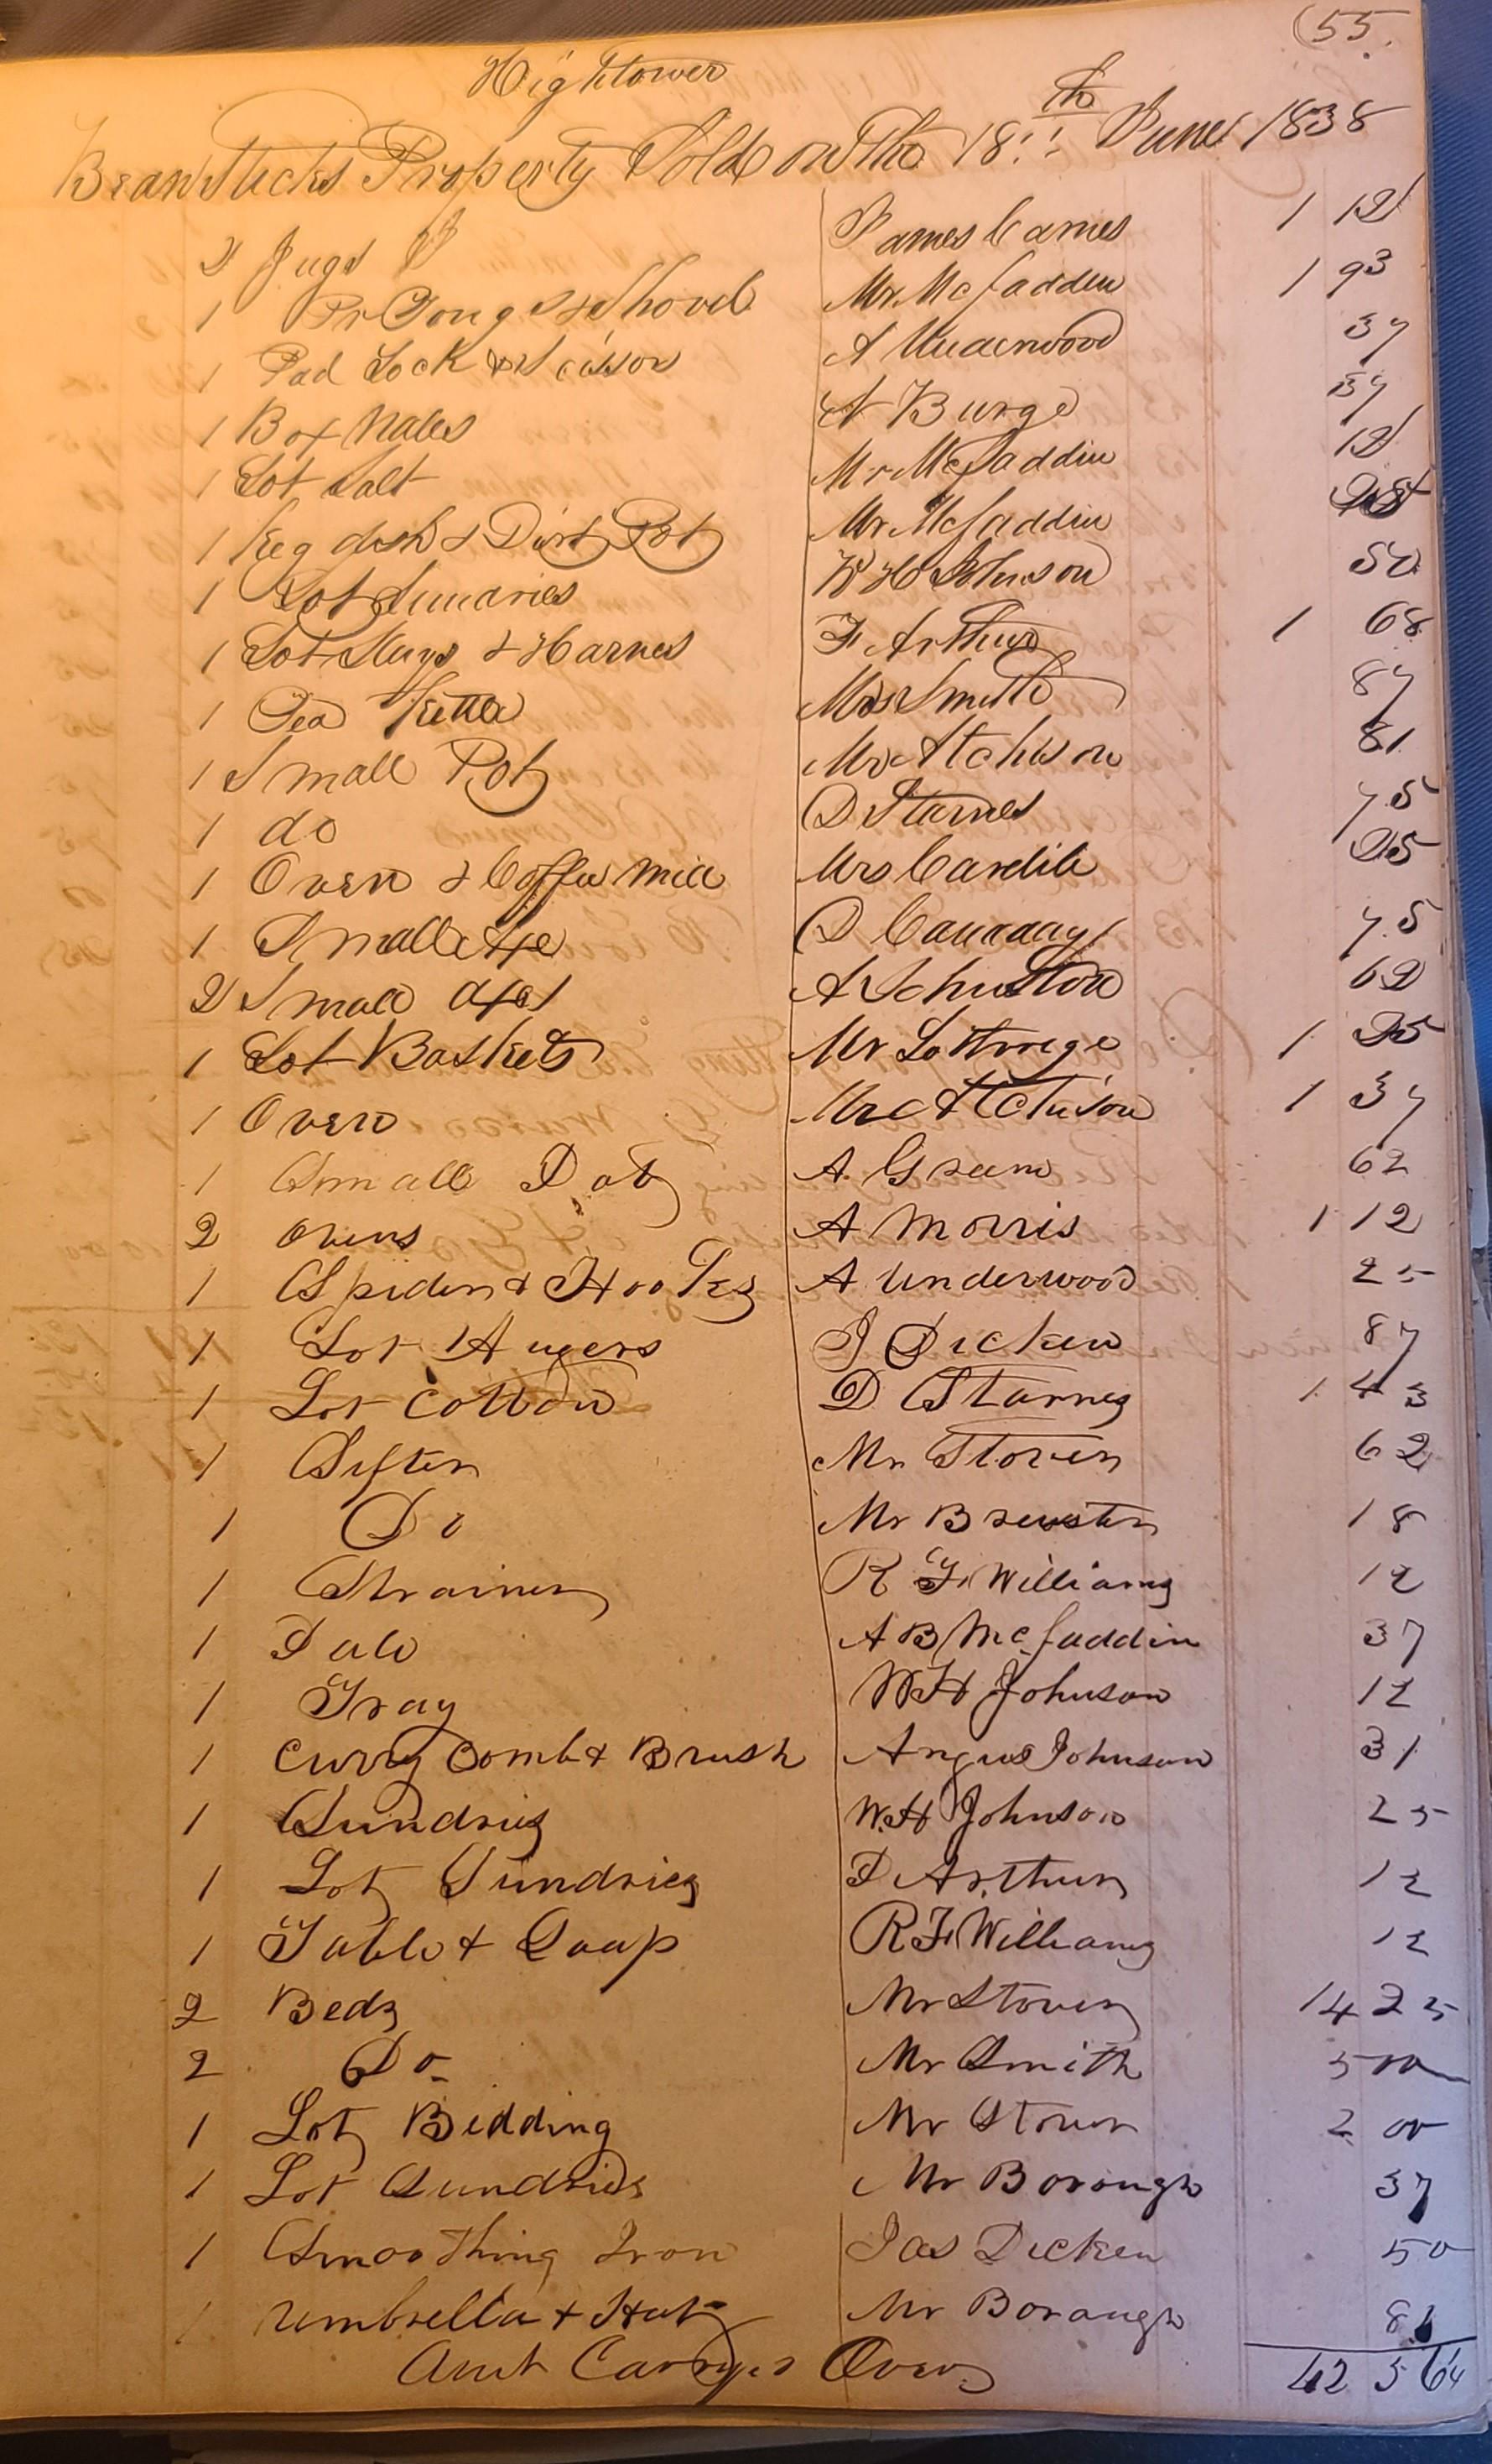 (55.
Hightower
Bean Sticks Property Sold on The 18th June 1838
2 Jugs James Carnes 1 12
1 Pr Tongs & Shovel Mr McFaddin 1 93
1 Pad Lock & Scissors A Underwood 37
1 Box Nales A Burge 37
1 Lot Salt Mr McFaddin 12
1 Keg dish & Dirt Pot Mr McFaddin
1 Lot Sundries W H Johnson 50
1 Lot Slays & Harnes F Arthur 1 68
1 Tea Kettle Mrs Smith 87
1 Small Pot Mr Atchison 81
1 do D Starnes 75
1 Oven & Coffee Mill Mrs Cardile 25
1 Small Axe D Caunaday 75
2 Small Axes A Johnston 62
1 Lot Baskets Mr Lottrege 1 25
1 Oven Mr Atchison 1 37
1 Small Pot A. Green 62
2 Ovens A Morris 1 12
1 Spider & Hooks A Underwood 25
1 Lot Augers J Dicken 87
1 Lot Cotton D Starnes 1 43
1 Sifter Mr Stover 62
1 Do Mr Brewster 18
1 Strainer R F Williams 12
1 Pale A B McFaddin 37
1 Tray W H Johnson 12
1 Curry Comb & Brush Angus Johnson 31
1 Sundries W. H Johnson 25
1 Lot Sundries D Arthur 12
1 Table & Soap R F Williams 12
2 Beds Mr Stover 14 25
2 Do Mr Smith 5 00
1 Lot Bedding Mr Stover 2 00
1 Lot Sundries Mr Borough 37
1 Smoothing Iron Jas Dicken 50
1 Umbrella & Hat Mr Borough 81
Amt Carryed Over 42 56¼